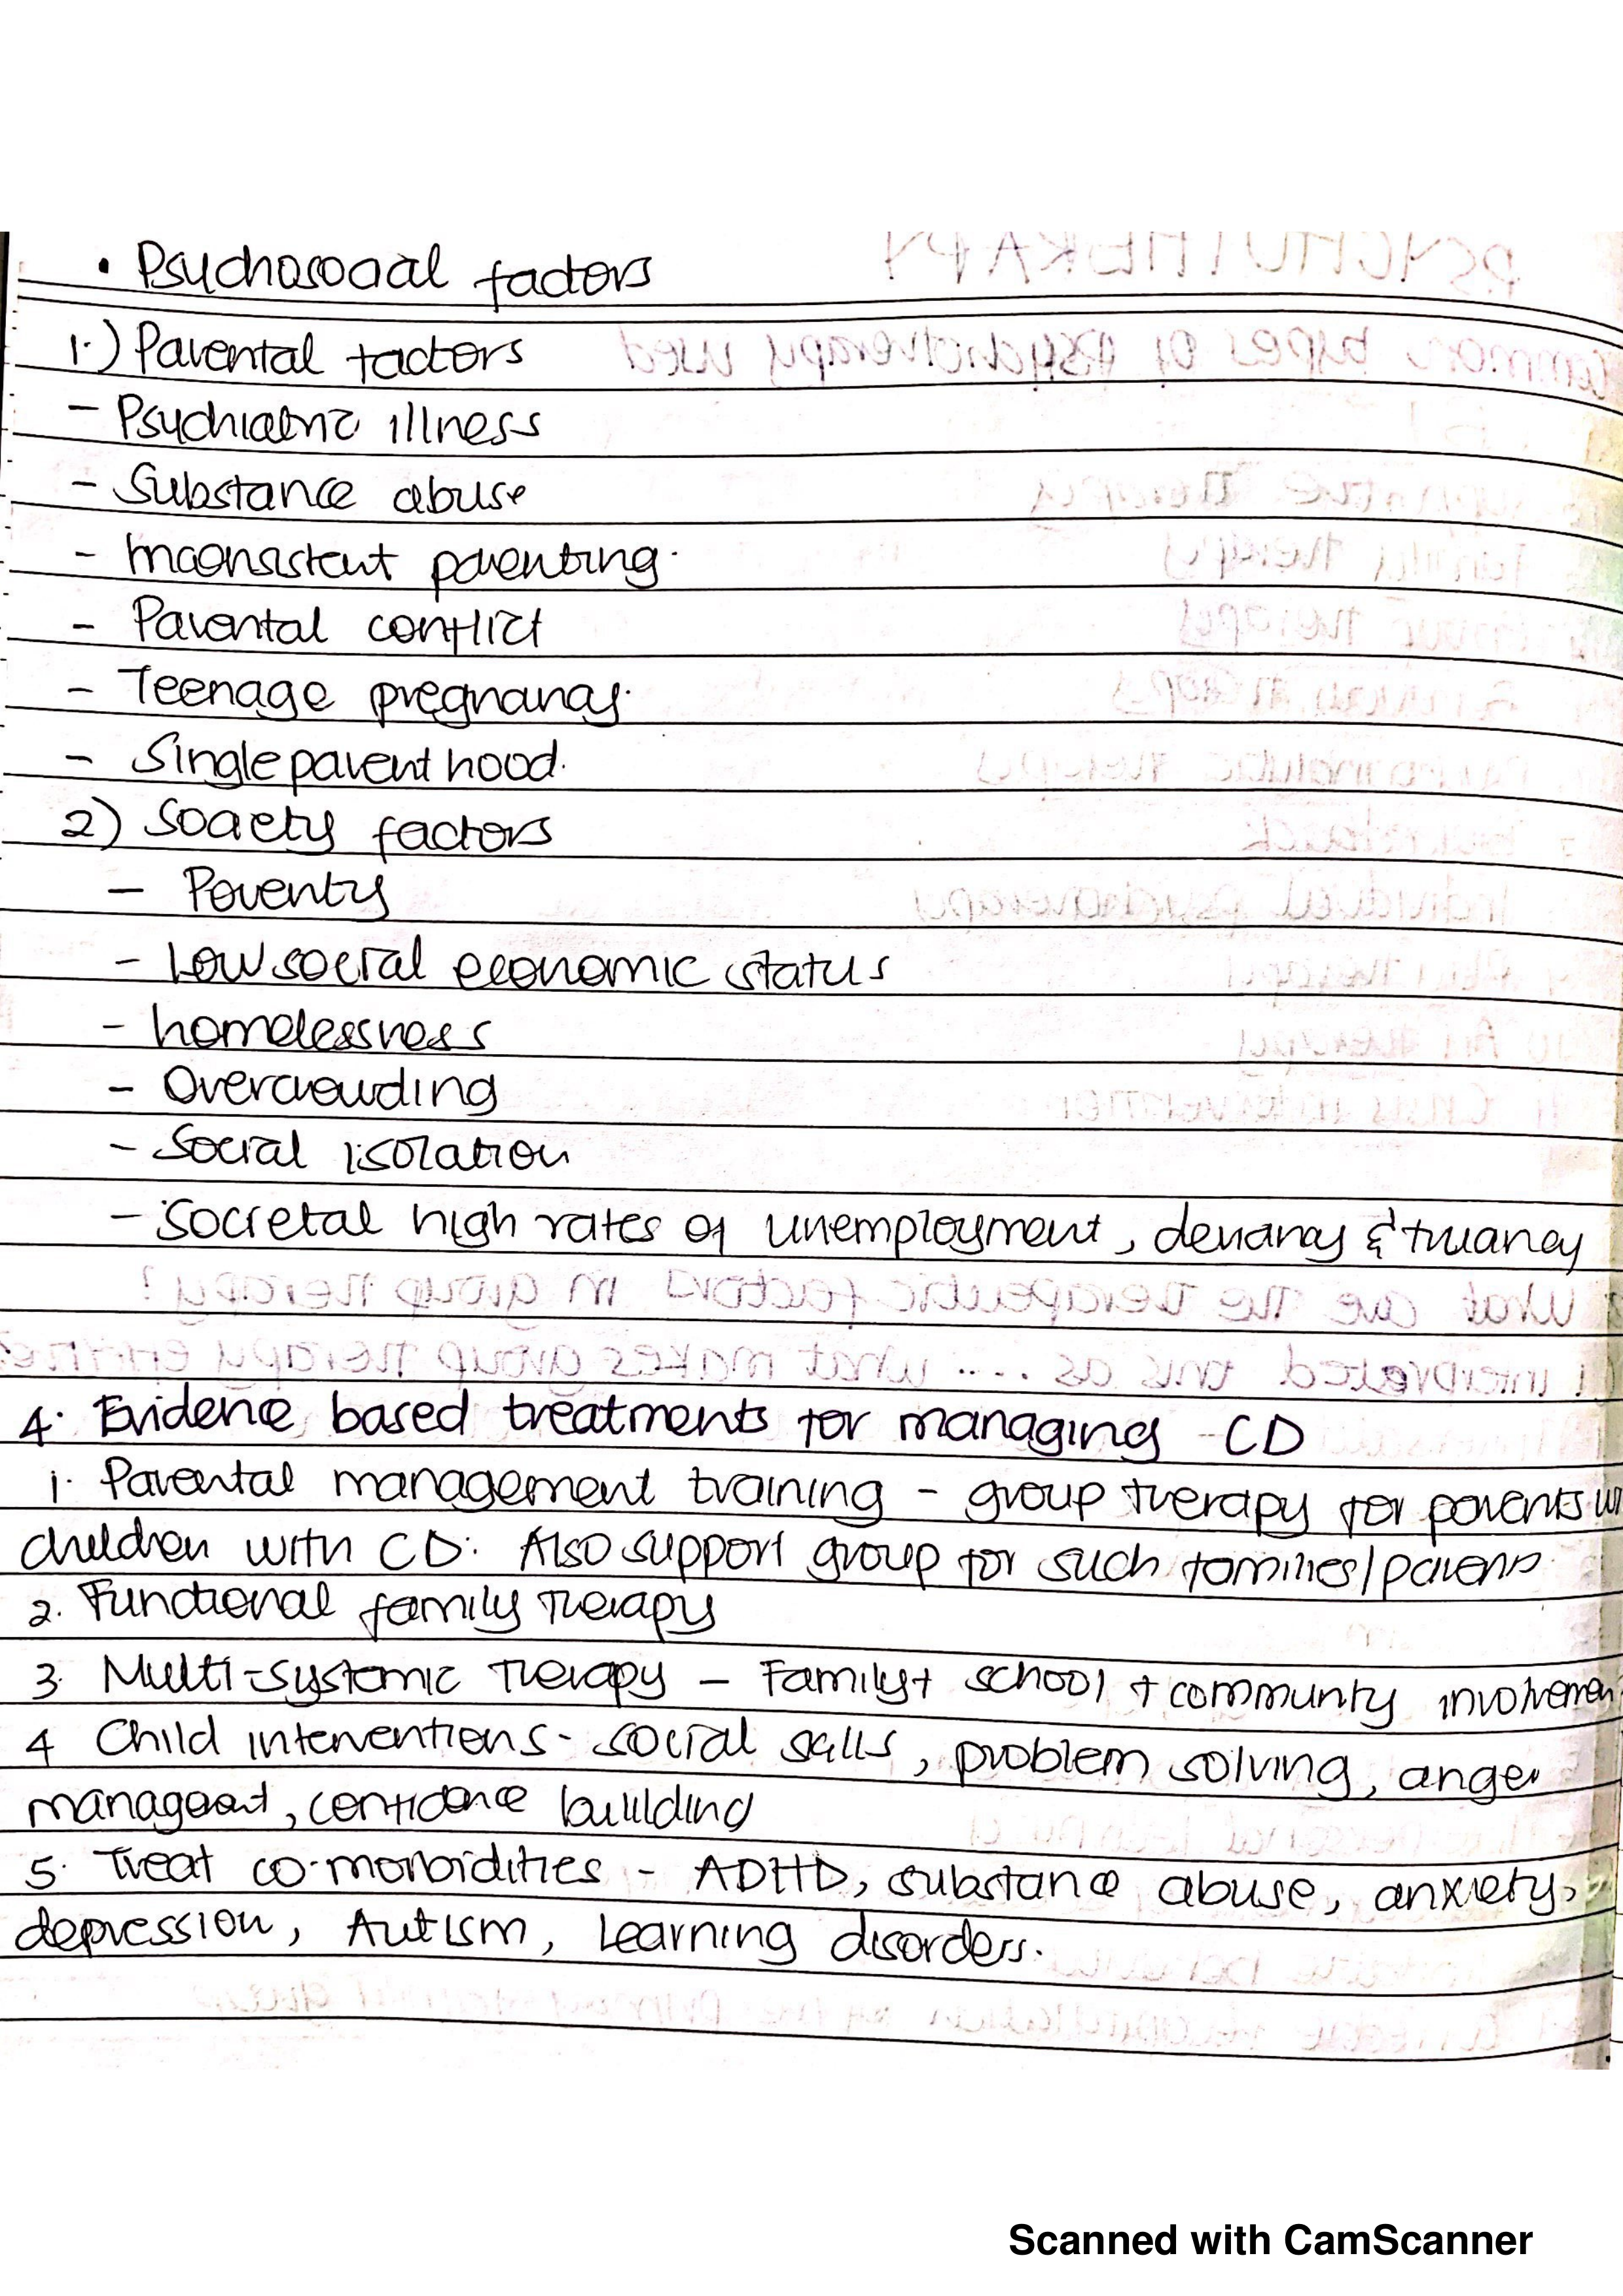 • Psychosocial factors
1.) Parental factors
- Psychiatric illness
- Substance abuse
- Inconsistent parenting.
- Parental conflict
- Teenage pregnancy.
- Single parent hood.
2) Society factors
- Poverty
- Low social economic status
- homelessness
- Overcrowding
- Social isolation
- Societal high rates of unemployment, deviancy & truancy
4. Evidence based treatments for managing CD
1. Parental management training - group therapy for parents w
children with CD. Also support group for such families/parents
2. Functional family therapy
3. Multi-systemic therapy - Family + school + community involvemen
4 Child interventions - social sklls, problem solving, anger
management, confidence buillding
5. Treat co-morbidities - ADHD, substance abuse, anxiety,
depression, Autism, Learning disorders.
Scanned with CamScanner